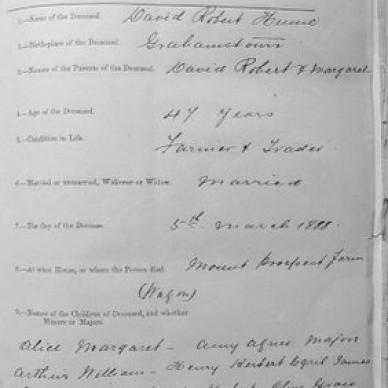 1.—Name of the Deceased. David Robert Hume
2.—Birth-place of the Deceased. Grahamstown
3.—Names of the Parents of the Deceased. David Robert & Margaret
4.—Age of the Deceased. 47 Years
5.—Condition in Life. Farmer & Trader
6.—Married or unmarried, Widower or Widow. Married
7.—The day of the Decease. 5th March 1881.
8.—At what House, or where the Person died. Mount Prospect Farm
(Wagon)
9.—Names of the Children of Deceased, and whether
Minors or Majors.
Alice Margaret - Amy Agnes Majors
Arthur William - Henry Herbert Cyril James